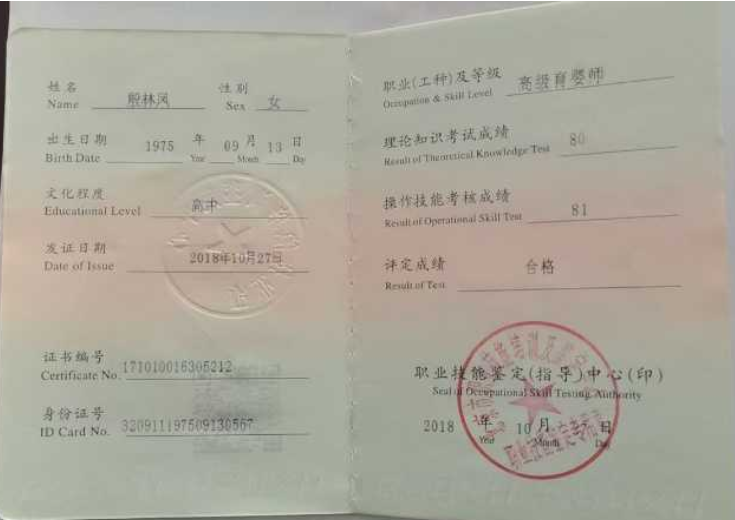 姓名 殷林凤 性别 女
Name Sex
出生日期 1975 年 09 月 13 日
Birth Date Year Month Day
文化程度 高中
Educational Level
发证日期 2018年10月27日
Date of Issue
证书编号 171010016305212
Certificate No.
身份证号 320911197509130567
ID Card No.
职业(工种)及等级 高级育婴师
Occupation & Skill Level
理论知识考试成绩 80
Result of Theoretical Knowledge Test
操作技能考核成绩 81
Result of Operational Skill Test
评定成绩 合格
Result of Test
职业技能鉴定(指导)中心(印)
Seal of Occupational Skill Testing Authority
2018 年 10 月 日
Year Month Day